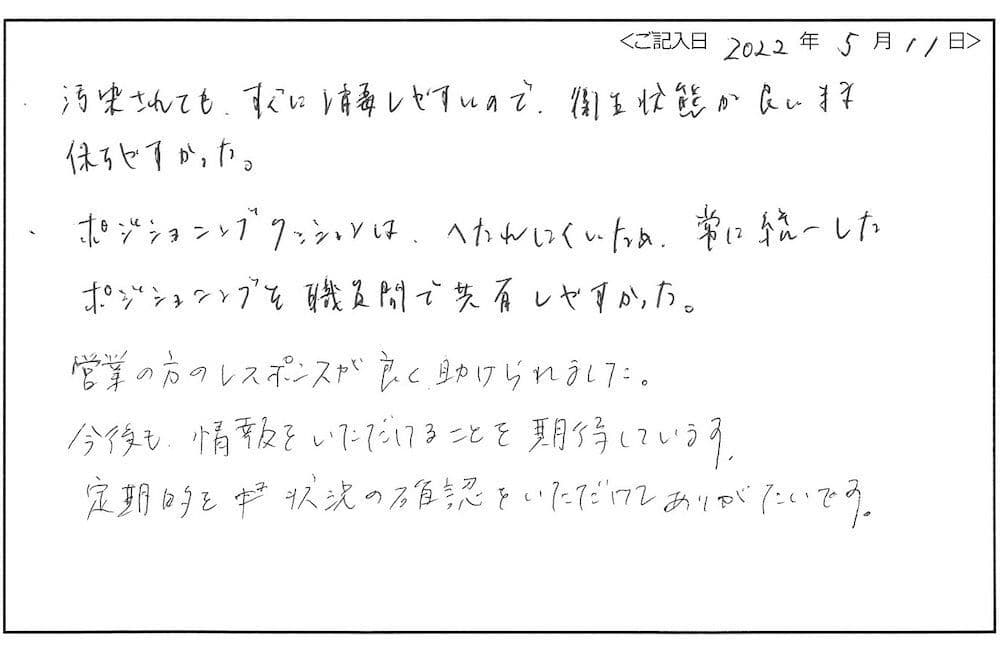 <ご記入日 2022 年 5 月 11 日>
・汚染されても、すぐに消毒しやすいので、衛生状態が良いまま
保ちやすかった。
・ポジショニングクッションは、へたれにくいため、常に統一した
ポジショニングを職員間で共有しやすかった。
営業の方のレスポンスが良く、助けられました。
今後も、情報をいただけることを期待しています。
定期的 状況の確認をいただけてありがたいです。